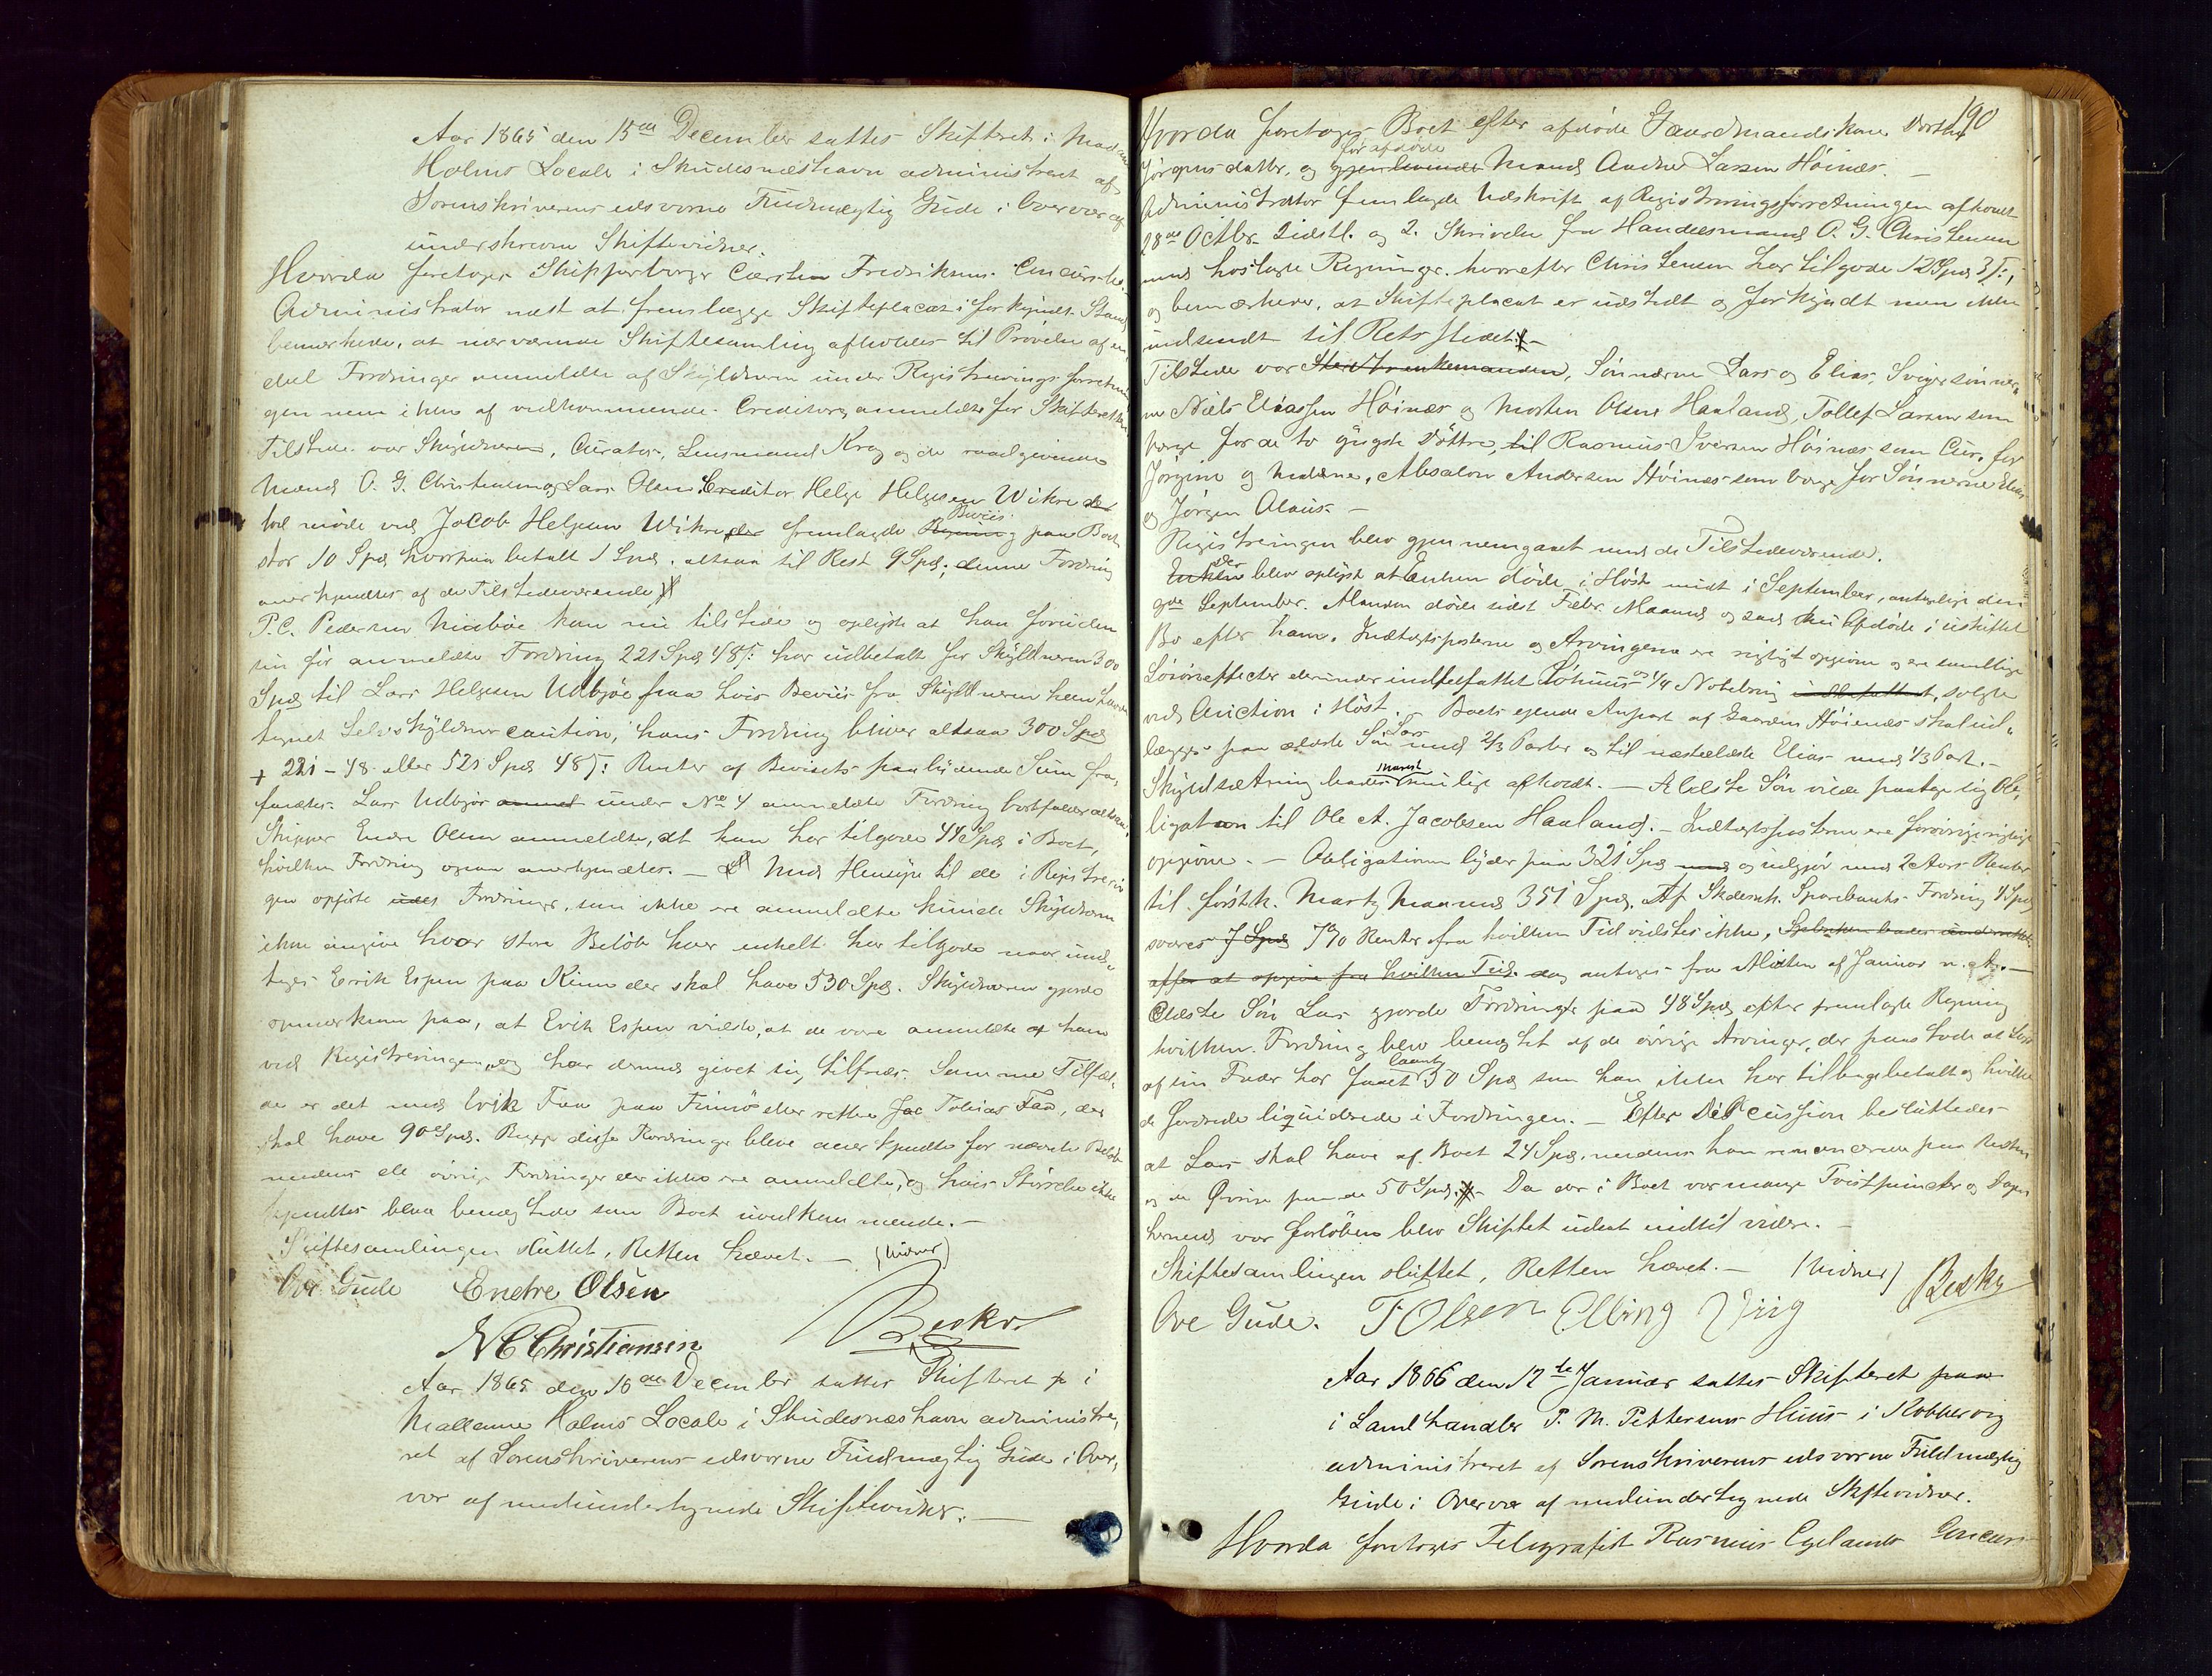 Aar 1865 den 15de December sattes Skifteret i Madam
Holms Locale i Skudesnæshavn administreret af
Sorenskriverens edsvorne Fuldmægtig Gude i Overvær af
underskrevne Skiftevidner.
Hvorda foretoges Skipperborger Carsten Fredriksens Concursbo.
Administrator næst at fremlægge Skifteplacat i forkyndt Stand
bemærkede, at nærværende Skiftesamling afholdes til Prøvelse af en
deel Fordringer anmeldte af Skyldneren under Registreringsforretnin
gen men ikke af vedkommende Creditorer anmeldte for Skifteretten
Tilstede var Skyldneren, Curator, Lensmand Krog og de raadgivende
Mænd O. G. Christensen og Lars Olsen. Creditor Helge Helgesen Wikre der
lod møde ved Jacob Helgesen Wikre der fremlagde Regning Beviis paa Boet
stor 10 Spd hvorpaa betalt 1 Spd, altsaa til Rest 9 Spd; denne Fordring
anerkjendtes af de Tilstedeværende
P.C. Pedersen kom nu tilstede og oplyste at han foruden
sin før anmeldte Fordring 221 Spd 48 ß har udbetalt for Skyldneren 300
Spd til Lars Helgesen Udbjøe paa hvis Beviis fra Skyldneren han havde
tegnet Selvskyldnercaution, hans Fordring bliver altsaa 300 Spd
+ 221 - 48 eller 521 Spd 48 ß: Renter af Bevisets paalydende Sum fra,
Lars Udbjør under No 4 anmeldte Fordring bortfalder altsaa.
Skipper Endre Olsen anmeldte, at han har tilgode 44 Spd i Boet,
hvilken Fordring ogsaa anerkjendtes. - Med Hensyn til de i Registrerin
gen opførte Fordringer, som ikke ere anmeldte kunde Skyldneren
ikke angive hvor store Beløb hver enkelt har tilgode naar und,
tages Erik Espen paa Kinn der skal have 530 Spd. Skyldneren gjorde
opmærksom paa, at Erik Espen vidste, at de vare anmeldte af ham
ved Registreringen, og har dermed givet sig tilfreds. Samme Tilfæl,
de er det med Erik Faa paa Finnø eller rettere Jac Tobias Faa, der
skal have 90 Spd. Begge disse Fordringer bleve anerkjendte for nævnte Beløb
medens de øvrige Fordringer der ikke ere anmeldte, og hvis Størrelse ikke
kjendtes bleve benægtede som Boet uvedkommende. -
Skiftesamlingen sluttet, Retten hævet. - (Vidner)
Ove Gude Endre Olsen
N C Christiansen
Aar 1865 den 15de December sattes Skifteret p i
Madame Holms Locale i Skudesnæshavn administre,
ret af Sorenskriverens edsvorne Fuldmægtig Gude i Over,
vær af medundertegnede Skiftevidner. -
190
Hvorda foretoges Boet efter afdøde Gaardmandskone Dorthe
Jørgensdatter, og gjenlevende før afdøde Mand Andreas Larsen Høinæs. -
Administrator fremlagde Udskrift af Registreringsforretningen afholdt
28de Octbr. sidstl. og 2. Skrivelse fra Handelsmand O. G. Christensen
med hoslagte Regninger, hvorefter Christensen har tilgode 12 Spd 3 ß;
og bemærkede, at Skifteplacat er udstedt og forkyndt men ikke
indsendt til Retsstedet. -
Tilstede var Enkemanden, Sønnerne Lars og Elias, Svigersønner,
ne Niels Eliassen Høinæs og Morten Olsen Haaland, Tollef Larsen som
Værge for de to yngste Døttre, til Rasmus Iversen Høinæs som Cur. for
Jørgine og Madene, Absalon Andersen Høinæs som Værge for Sønnerne Elias
og Jørgen Olaus. -
Registreringen blev gjennemgaaet med de Tilstedeværende.
Enken Der blev oplyst at Enken døde i Høst midt i September, antagelig den
9de September. Manden døde sidst Febr. Maaned og sad nu Afdøde i uskiftet
Bo efter ham. Indtægtsposterne og Arvingerne ere rigtigt opgivne og ere samtlige
Løsøreeffecter derunder indbefattet og 1/4 Notebrug indbefattet, solgte
ved Auction i Høst. - Boets eiende Anpart af Gaarden Høinæs skal ud,
lægges paa ældste Søn Lars med 2/3 Parter og til næstældste Elias med 1/3 Part. -
Skyldsætning bedes snarest mulige afholdt. - Ældste Søn vilde paatage sig Ob,
ligation til Ole A. Jacobsen Haaland. - Indtægtsposterne ere forøvrigt rigtige
opgivne. - Obligationen lyder paa 321 Spd med og udgjør med 2 Aars Renter
til førstk. Marts Maaned 351 Spd. Af Skudesnh. Sparebanks Fordring 4 Spd
svares 7 Spd 7% Renter fra hvilken Tid vidstes ikke,
efter at opgive fra hvilken Tid. dog antages fra Midten af Januar n. A. -
Ældste Søn Lars gjorde Fordring paa 48 Spd efter fremlagte Regning
hvilken Fordring blev benægtet af de øvrige Arvinger, der paastode at Lars
af sin Fader har faaet laant 50 Spd som han ikke har tilbagebetalt og hvilke
de fordrede liquiderede i Fordringen. - Efter Discussion besluttedes
at Lars skal have af Boet 24 Spd, medens han renoncerede paa Resten
og de Øvrige paa de 50 Spd. - Da der i Boet var mange Tvistpuncter og Dagen
hermed var forløben blev Skiftet udsat indtil videre. -
Skiftesamlingen sluttet, Retten hævet. - (Vidner)
Ove Gude. T Olsen Elling Viig
Aar 1866 den 12te Januar sattes Skifteret paa
i Landhandler P. M. Pettersens Huus i Kobbervig
administreret af Sorenskriverens edsvorne Fuldmægtig
Gude i Overvær af medundertegnede Skiftevidner.
Hvorda foretoges Telegrafist Rasmus Egelands Concurs